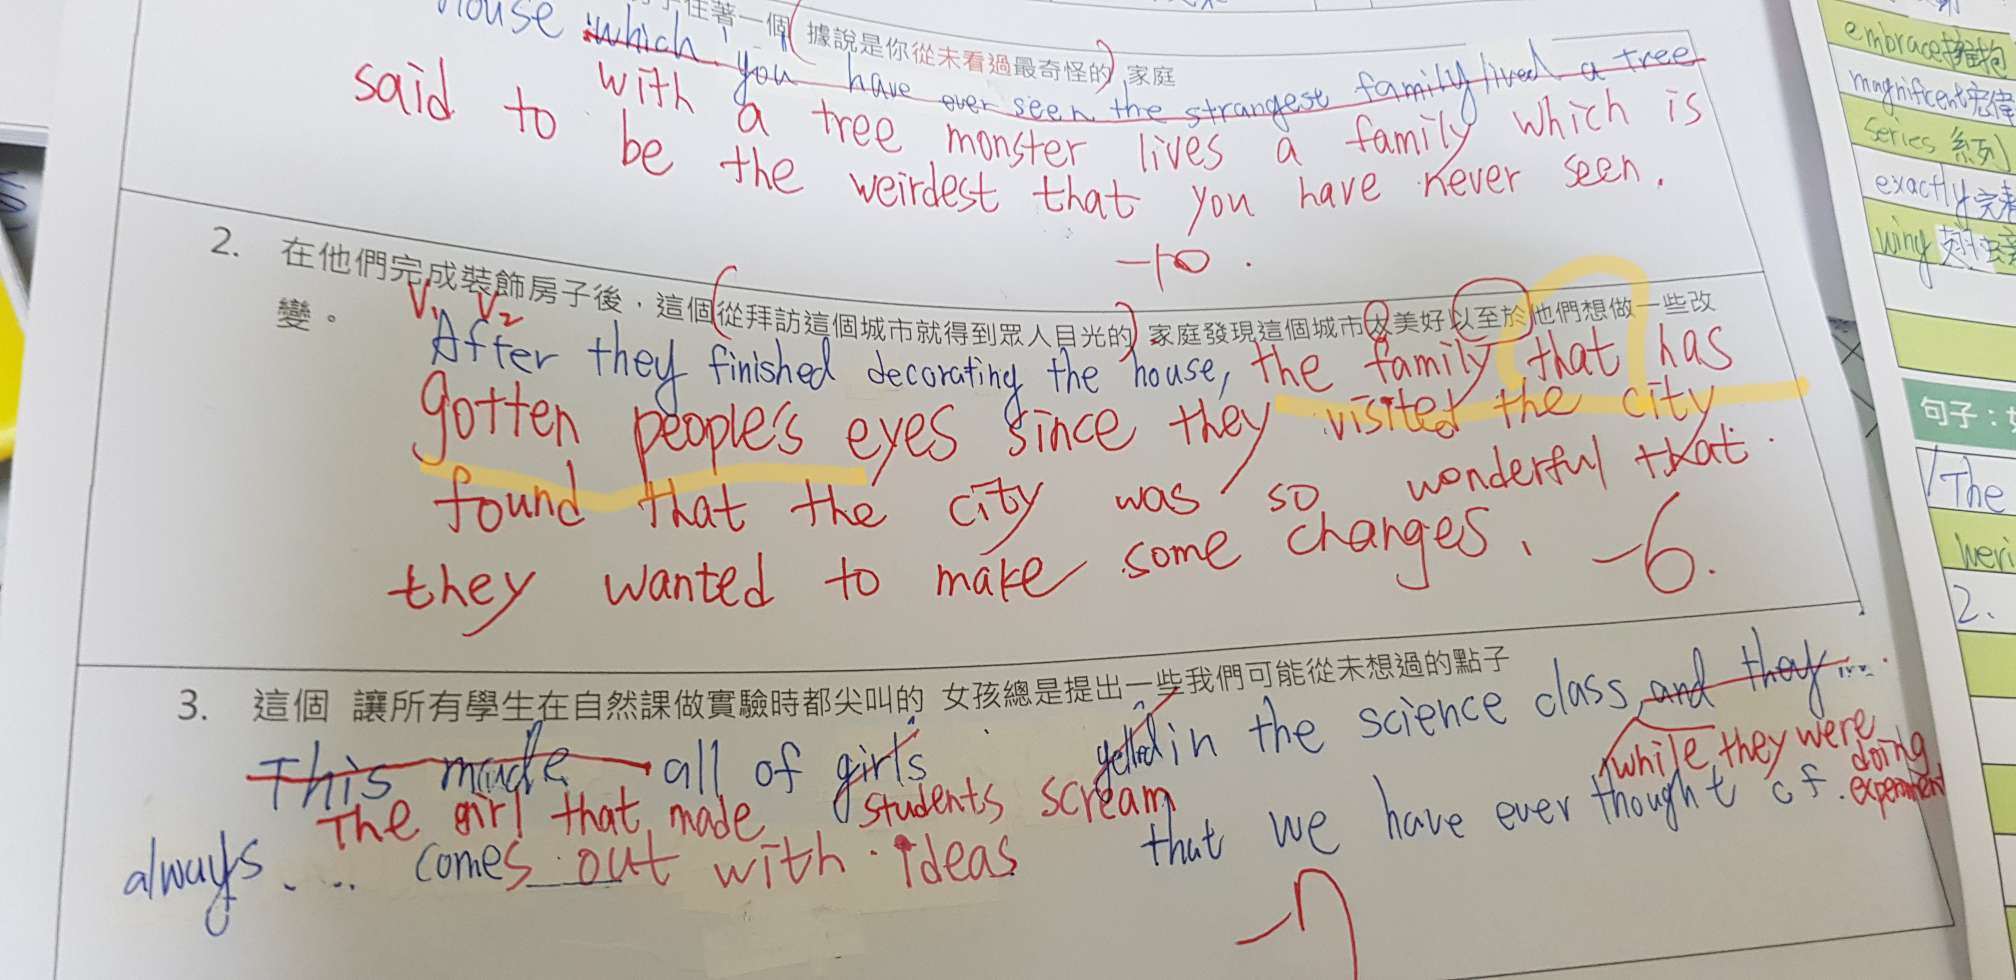 住著一個(據說是你從未看過最奇怪的)家庭
house which you have ever seen the strangest family lived a tree
with a tree monster lives a family which is
said to be the weirdest that you have never seen.
-10.
2. 在他們完成裝飾房子後，這個(從拜訪這個城市就得到眾人目光的)家庭發現這個城市太美好以至於他們想做一些改
變。
V1 V2
After they finished decorating the house, the family that has
gotten people's eyes since they visited the city
found that the city was so wonderful that
they wanted to make some changes.
-6.
3. 這個 讓所有學生在自然課做實驗時都尖叫的 女孩總是提出一些我們可能從未想過的點子
This made all of girls yelled in the science class, and they ....
The girl that made students scream while they were doing experiment
always .... comes out with ideas that we have ever thought of.
-7
embrace擁抱
magnificent宏偉
series 系列
exactly完
wing 翅
句子：
The
2.